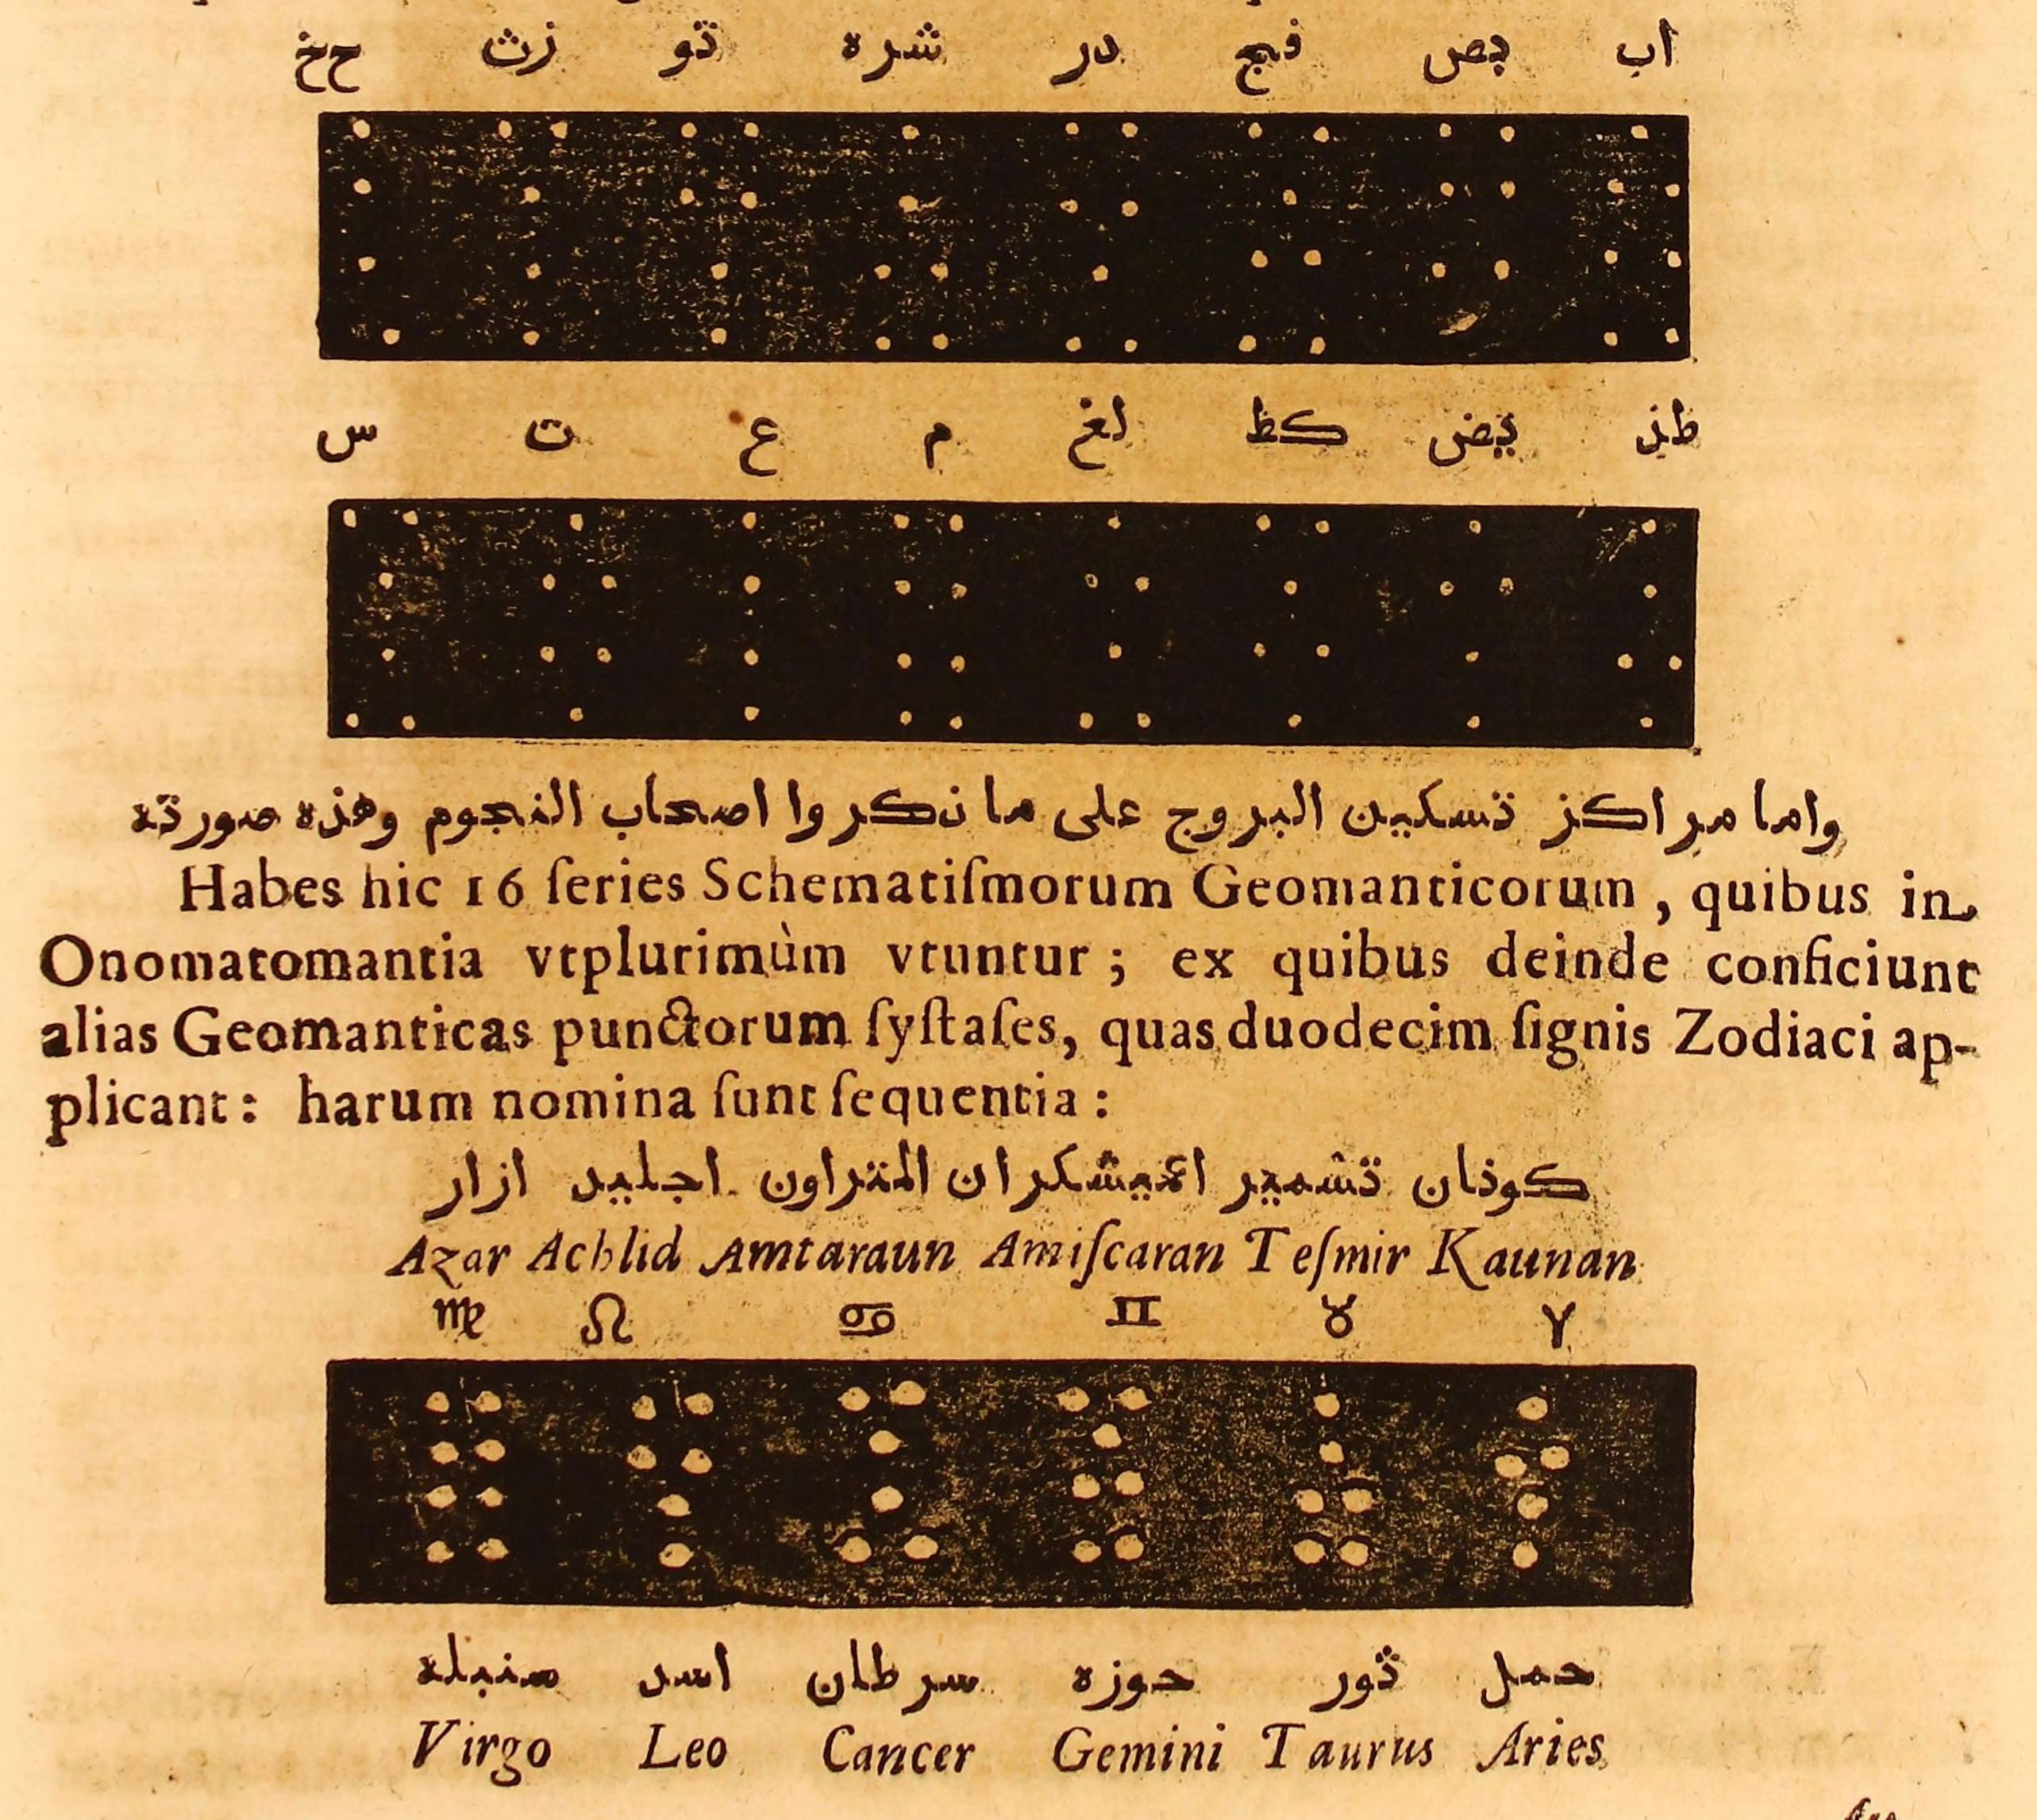 اب دص فىج در شره ثو زث حخ
طذ يض كظ لغ م ع ت س
واما مراكز تسكين البروج على ما ذكروا اصحاب النجوم وهذه صورته
Habes hic 16 ſeries Schematiſmorum Geomanticorum, quibus in
Onomatomantia vtplurimùm vtuntur; ex quibus deinde conficiunt
alias Geomanticas punctorum ſyſtaſes, quas duodecim ſignis Zodiaci ap-
plicant: harum nomina ſunt ſequentia:
كوذان تشمير اميشكران المتراون اجليد ازار
Azar Achlid Amtaraun Amiſcaran Teſmir Kaunan
♍ ♌ ♋ ♊ ♉ ♈
حمل ثور جوزه سرطان اسد سنبله
Virgo Leo Cancer Gemini Taurus Aries